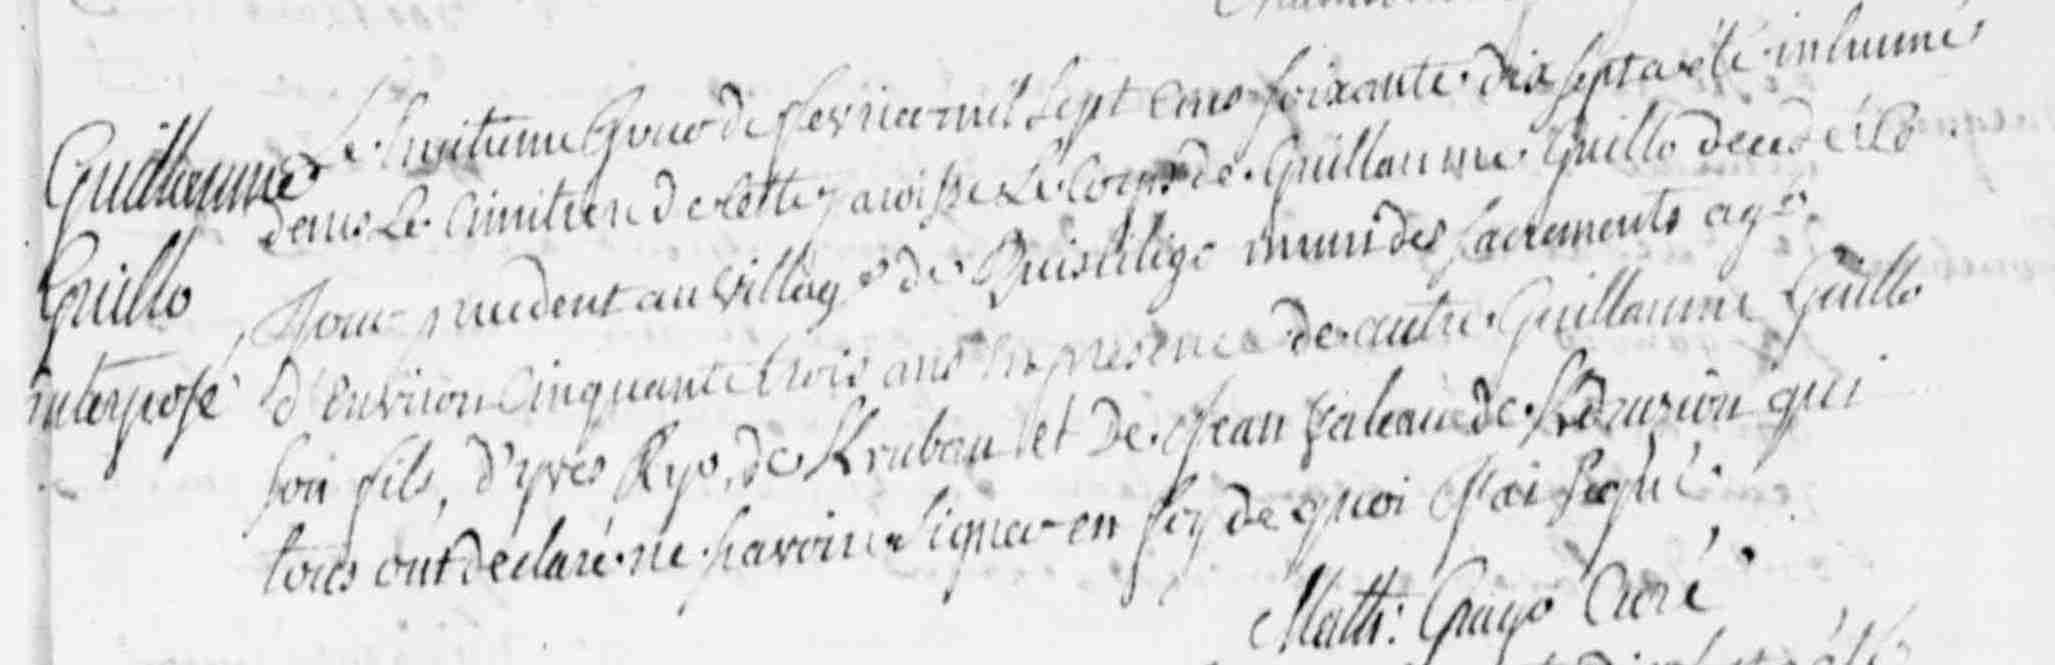 Guillaume
Guillo
interposé
Le huitieme jour de fevrier mil sept cens soixante dix sept a été inhumé
dans le cimitiere de cette paroisse le corps de Guillaume Guillo decedé le
jour precedent au village de muni des sacrements agé
d'environ cinquante trois ans en presence de autre Guillaume Guillo
son fils, d'yves de et de Jean de qui
tous ont déclaré ne scavoir signer en foy de quoi J'ai
Matth: Curé